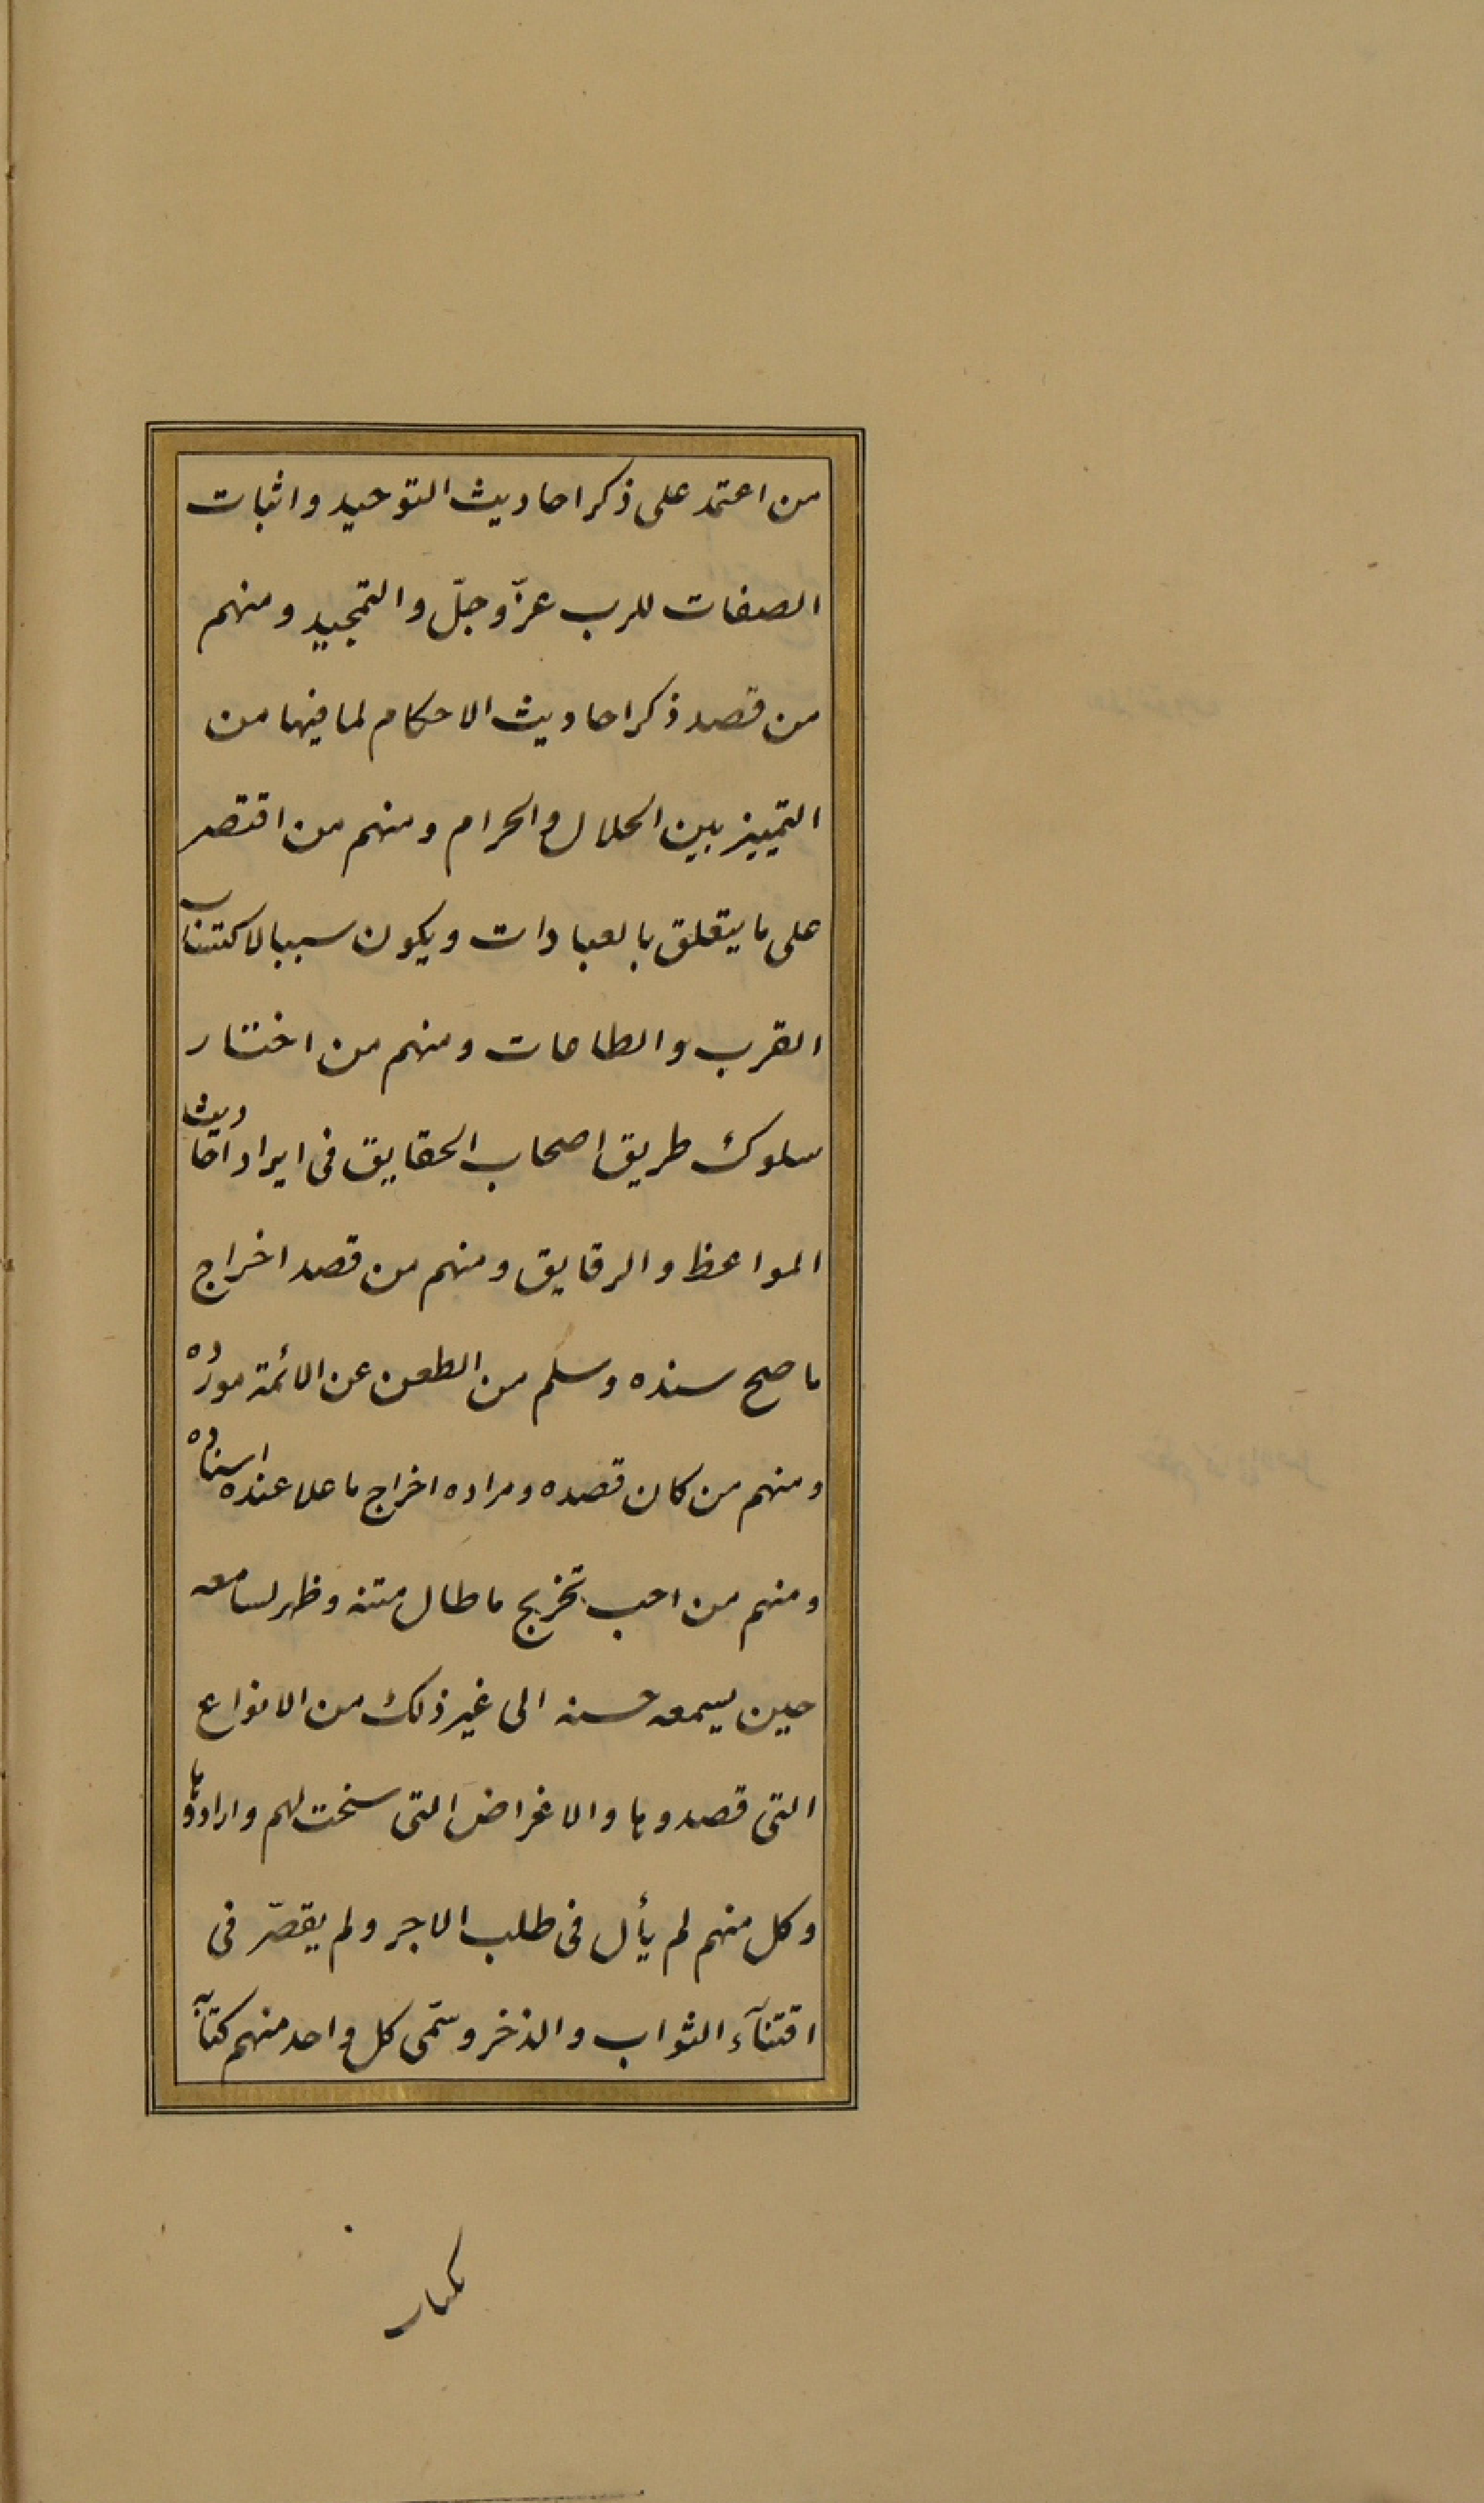 من اعتمد على ذكر احاديث التوحيد واثبات
الصفات للرب عزّ وجلّ والتمجيد ومنهم
من قصد ذكر احاديث الاحكام لما فيها من
التمييز بين الحلال والحرام ومنهم من اقتصر
على ما يتعلق بالعبادات ويكون سببا لاكتساب
القرب والطاعات ومنهم من اختار
سلوك طريق اصحاب الحقايق فى ايراد احاديث
المواعظ والرقايق ومنهم من قصد اخراج
ما صح سنده وسلم من الطعن عن الائمة مورده
ومنهم من كان قصده ومراده اخراج ما علا عنده اسناده
ومنهم من احب تخريج ما طال متنه وظهر لسامعه
حين يسمعه حسنه الى غير ذلك من الانواع
التى قصدوها والاغراض التى سنحت لهم وارادوها
وكل منهم لم يأل فى طلب الاجر ولم يقصّر فى
اقتنآء الثواب والذخر وسمّى كل واحد منهم كتابه